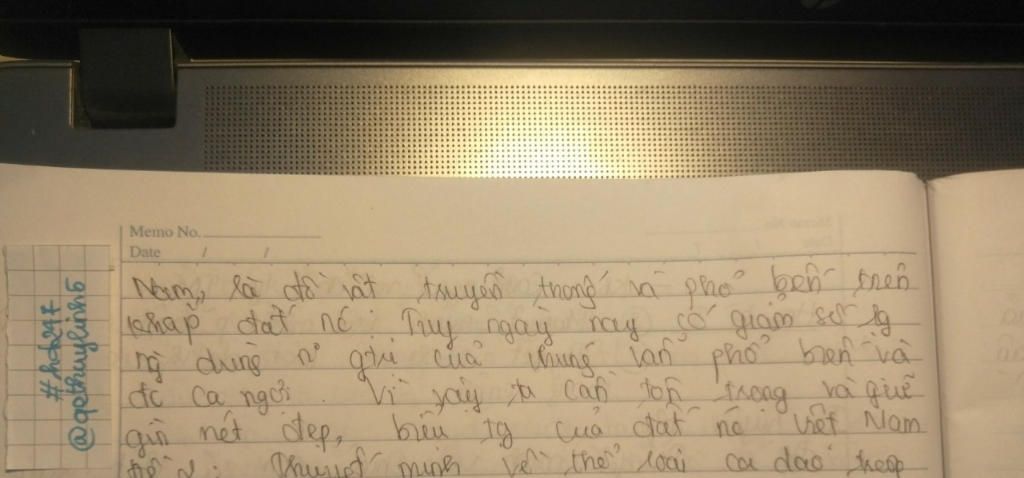 Memo No.
Date / /
Nam, là đồ vật truyền thống và phổ biến trên
khap đất nc. Tuy ngày nay có giảm số lg
ng dùng n' gtri của chúng vẫn phổ biến và
đc ca ngợi. Vì vậy ta cần tôn trọng và giữ
gìn nét đẹp, biểu tg của đất nc Việt Nam
Thuyết minh về thể loại ca dao
#hdo247
@qethuylinh5